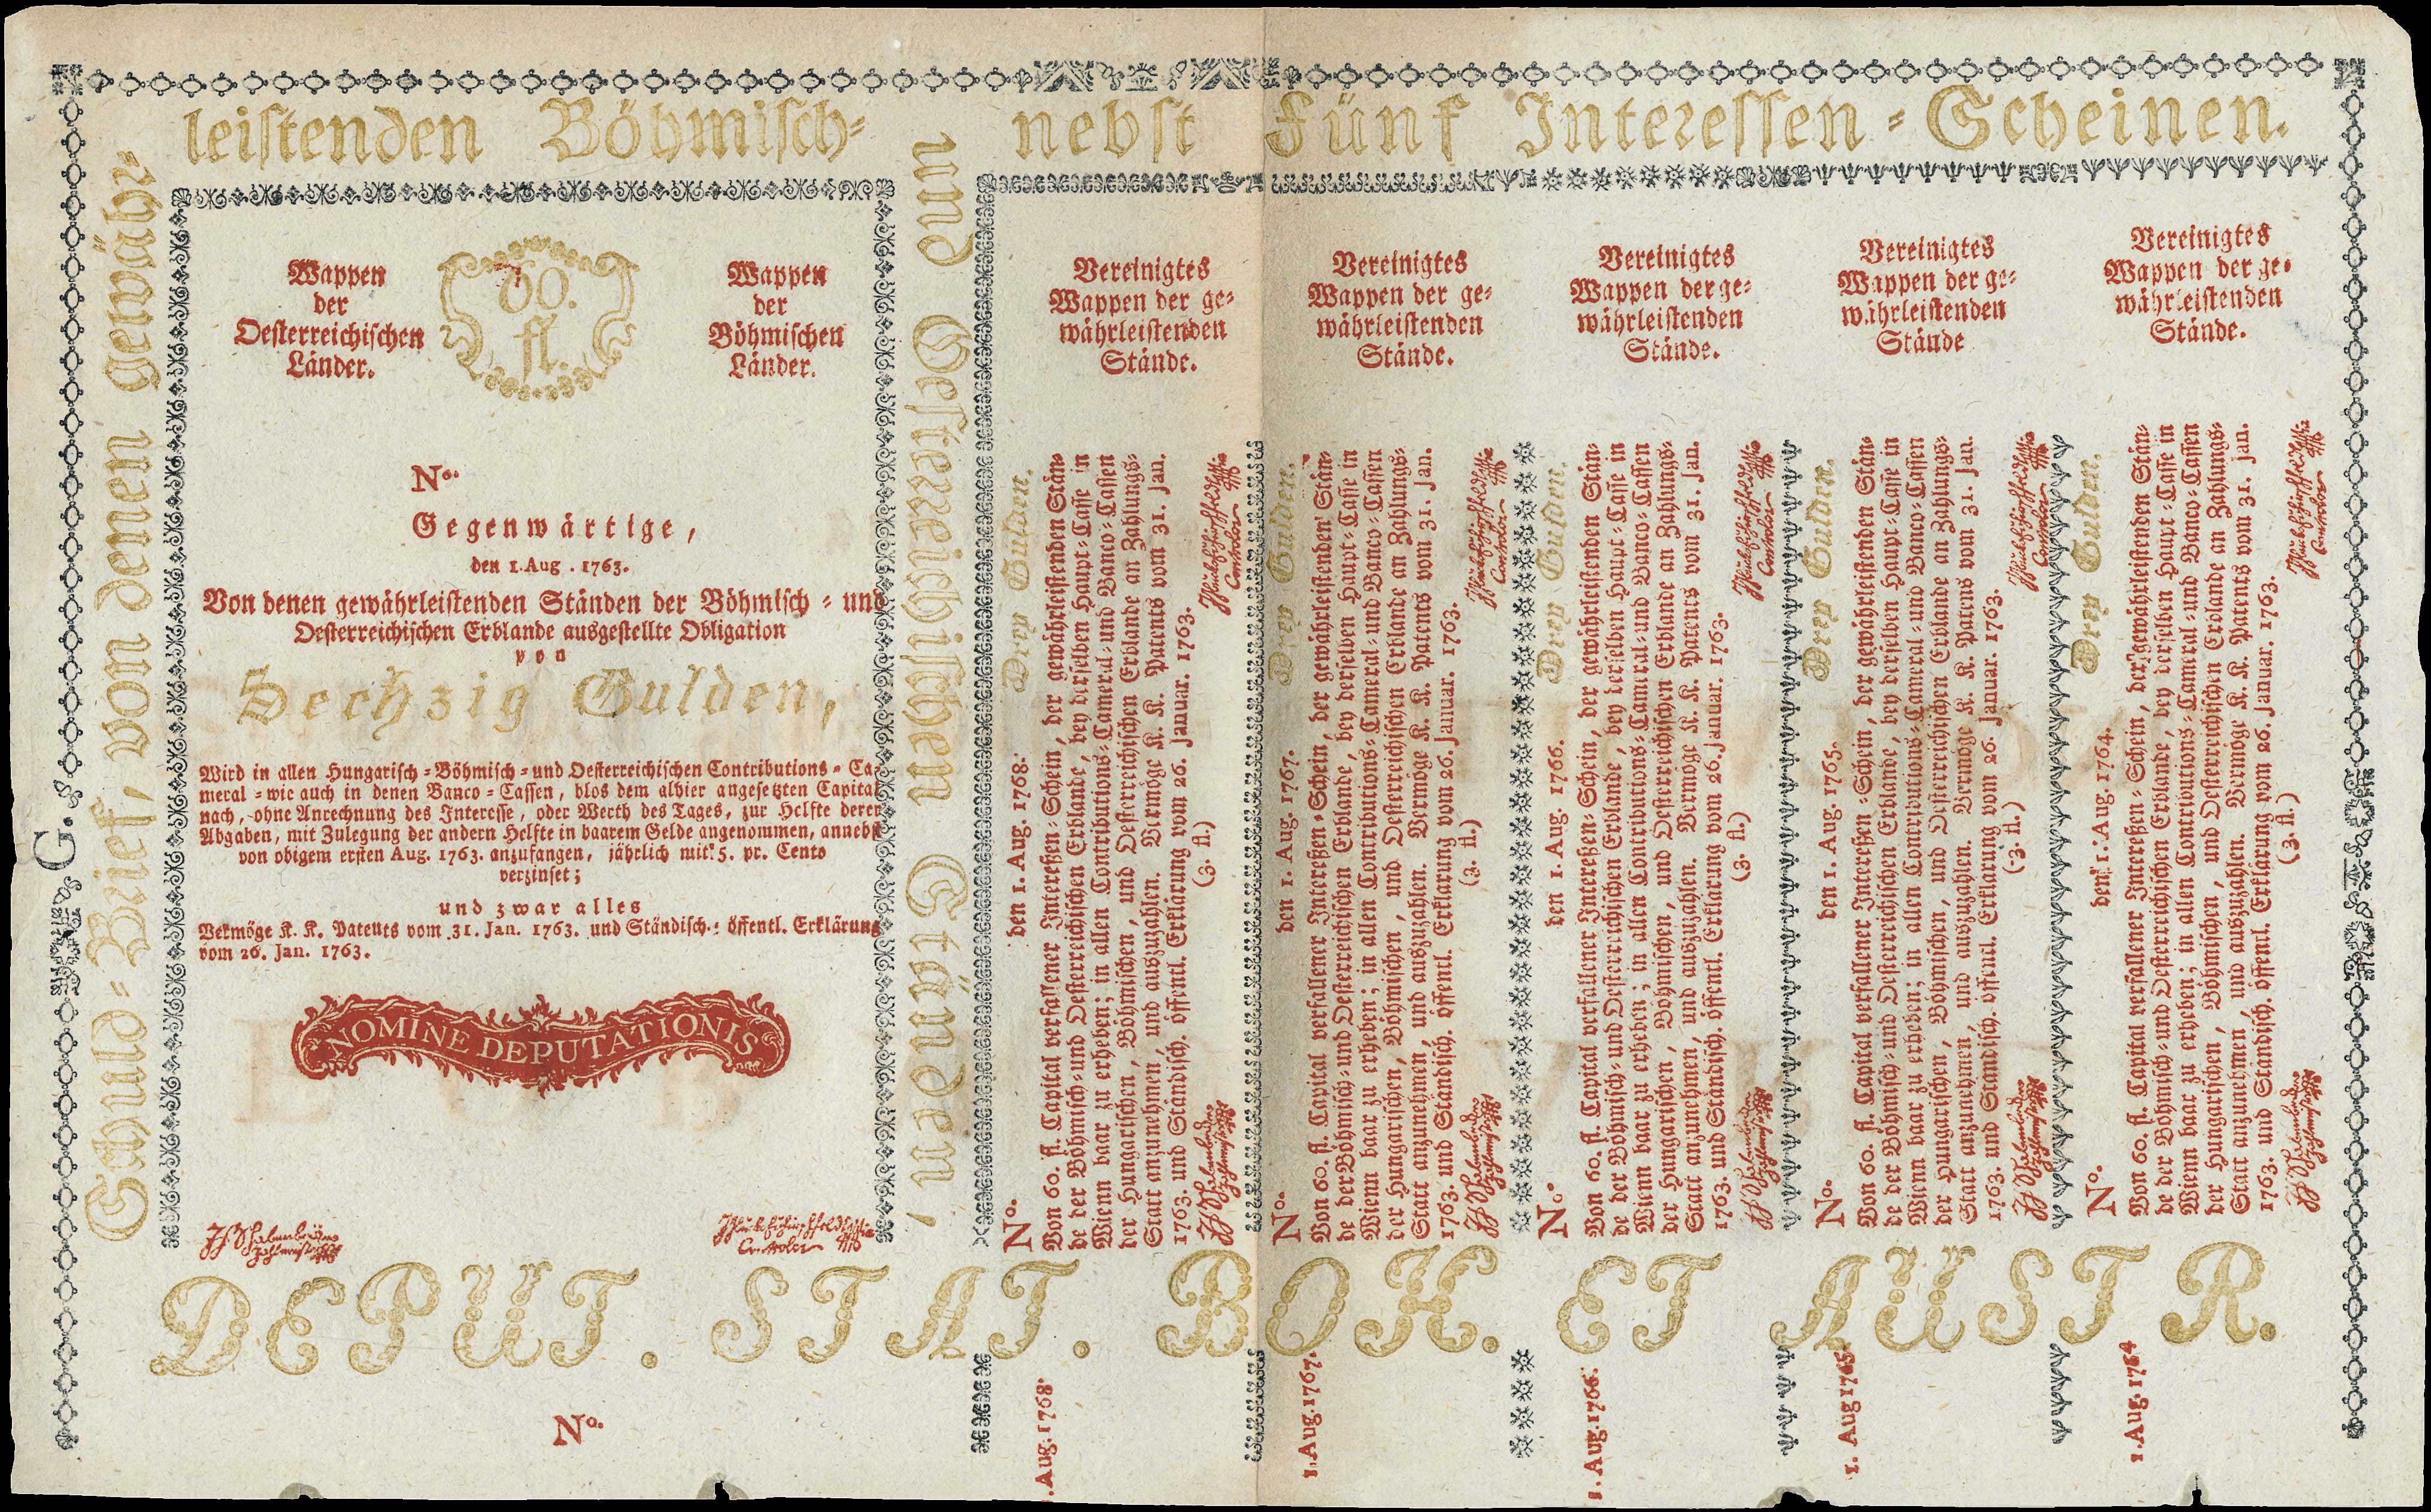 Schuld-Brief, von denen gewähr-
leistenden Böhmisch-
und Oesterreichischen Ständen,
nebst Fünf Interessen-Scheinen.
Wappen
der
Oesterreichischen
Länder.
60.
fl.
Wappen
der
Böhmischen
Länder.
No.
Gegenwärtige,
den 1. Aug. 1763.
Von denen gewährleistenden Ständen der Böhmisch- und
Oesterreichischen Erblande ausgestellte Obligation
von
Sechzig Gulden,
Wird in allen Hungarisch-Böhmisch-und Oesterreichischen Contributions-Ca-
meral-wie auch in denen Banco-Cassen, blos dem alhier angesetzten Capital
nach, ohne Anrechnung des Interesse, oder Werth des Tages, zur Helfte deren
Abgaben, mit Zulegung der andern Helfte in baarem Gelde angenommen, annebst
von obigem ersten Aug. 1763. anzufangen, jährlich mit 5. pr. Cento
verzinset;
und zwar alles
Vermöge K. K. Patents vom 31. Jan. 1763. und Ständisch: öffentl. Erklärung
vom 26. Jan. 1763.
NOMINE DEPUTATIONIS
Zahlmeister
Controlor
No.
G.
Vereinigtes
Wappen der ge-
währleistenden
Stände.
No.
den 1. Aug. 1768.
Drey Gulden.
Von 60. fl. Capital verfallener Intereßen-Schein, der gewährleistenden Stän-
de der Böhmisch-und Oesterreichischen Erblande, bey derselben Haupt-Casse in
Wienn baar zu erheben; in allen Contributions-Cameral-und Banco-Cassen
der Hungarischen, Böhmischen, und Oesterreichischen Erblande an Zahlungs-
Statt anzunehmen, und auszuzahlen. Vermöge K. K. Patents vom 31. Jan.
1763. und Ständisch. öffentl. Erklärung vom 26. Januar. 1763.
(3. fl.)
Zahlmeister
Controlor
1. Aug. 1768.
Vereinigtes
Wappen der ge-
währleistenden
Stände.
No.
den 1. Aug. 1767.
Drey Gulden.
Von 60. fl. Capital verfallener Intereßen-Schein, der gewährleistenden Stän-
de der Böhmisch-und Oesterreichischen Erblande, bey derselben Haupt-Casse in
Wienn baar zu erheben; in allen Contributions-Cameral-und Banco-Cassen
der Hungarischen, Böhmischen, und Oesterreichischen Erblande an Zahlungs-
Statt anzunehmen, und auszuzahlen. Vermöge K. K. Patents vom 31. Jan.
1763. und Ständisch. öffentl. Erklärung vom 26. Januar. 1763.
(3. fl.)
Zahlmeister
Controlor
1. Aug. 1767.
Vereinigtes
Wappen der ge-
währleistenden
Stände.
No.
den 1. Aug. 1766.
Drey Gulden.
Von 60. fl. Capital verfallener Intereßen-Schein, der gewährleistenden Stän-
de der Böhmisch-und Oesterreichischen Erblande, bey derselben Haupt-Casse in
Wienn baar zu erheben; in allen Contributions-Cameral-und Banco-Cassen
der Hungarischen, Böhmischen, und Oesterreichischen Erblande an Zahlungs-
Statt anzunehmen, und auszuzahlen. Vermöge K. K. Patents vom 31. Jan.
1763. und Ständisch. öffentl. Erklärung vom 26. Januar. 1763.
(3. fl.)
Zahlmeister
Controlor
1. Aug. 1766.
Vereinigtes
Wappen der ge-
währleistenden
Stände
No.
den 1. Aug. 1765.
Drey Gulden.
Von 60. fl. Capital verfallener Intereßen-Schein, der gewährleistenden Stän-
de der Böhmisch-und Oesterreichischen Erblande, bey derselben Haupt-Casse in
Wienn baar zu erheben; in allen Contributions-Cameral-und Banco-Cassen
der Hungarischen, Böhmischen, und Oesterreichischen Erblande an Zahlungs-
Statt anzunehmen, und auszuzahlen. Vermöge K. K. Patens vom 31. Jan.
1763. und Ständisch. öffentl. Erklärung vom 26. Januar. 1763.
(3. fl.)
Zahlmeister
Controlor
1. Aug 1765.
Vereinigtes
Wappen der ge-
währleistenden
Stände.
No.
den 1. Aug. 1764.
Drey Gulden.
Von 60. fl. Capital verfallener Intereßen-Schein, der gewährleistenden Stän-
de der Böhmisch-und Oesterreichischen Erblande, bey derselben Haupt-Casse in
Wienn baar zu erheben; in allen Contributions-Cameral-und Banco-Cassen
der Hungarischen, Böhmischen, und Oesterreichischen Erblande an Zahlungs-
Statt anzunehmen, und auszuzahlen. Vermöge K. K. Patents vom 31. Jan.
1763. und Ständisch. öffentl. Erklärung vom 26. Januar. 1763.
(3. fl.)
Zahlmeister
Controlor
1. Aug. 1764
DEPUT. STAT. BOH. ET AUSTR.